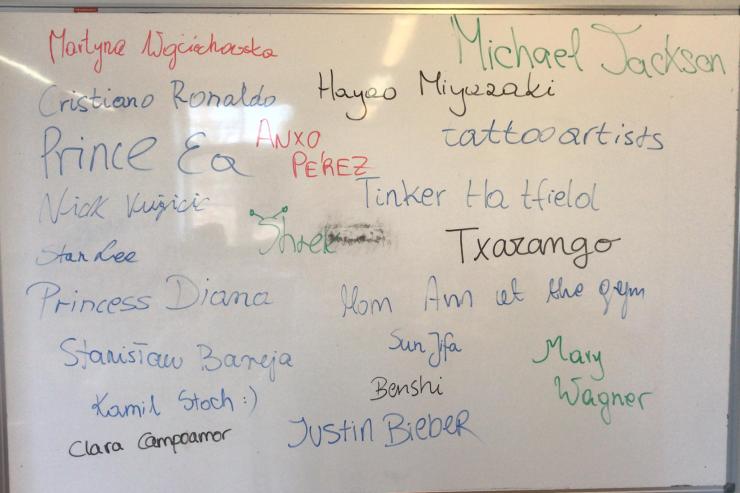 Martyna Wojciechowska
Michael Jackson
Cristiano Ronaldo
Hayao Miyazaki
Prince Ea
ANXO
PÉREZ
tattooartists
Nick Vujicic
Tinker Hatfield
Shrek
Stan Lee
Txarango
Princess Diana
Mom Am at the gym
Stanisław Bareja
Sun Jifa
Mary
Wagner
Kamil Stoch :)
Benshi
Clara Campoamor
Justin Bieber